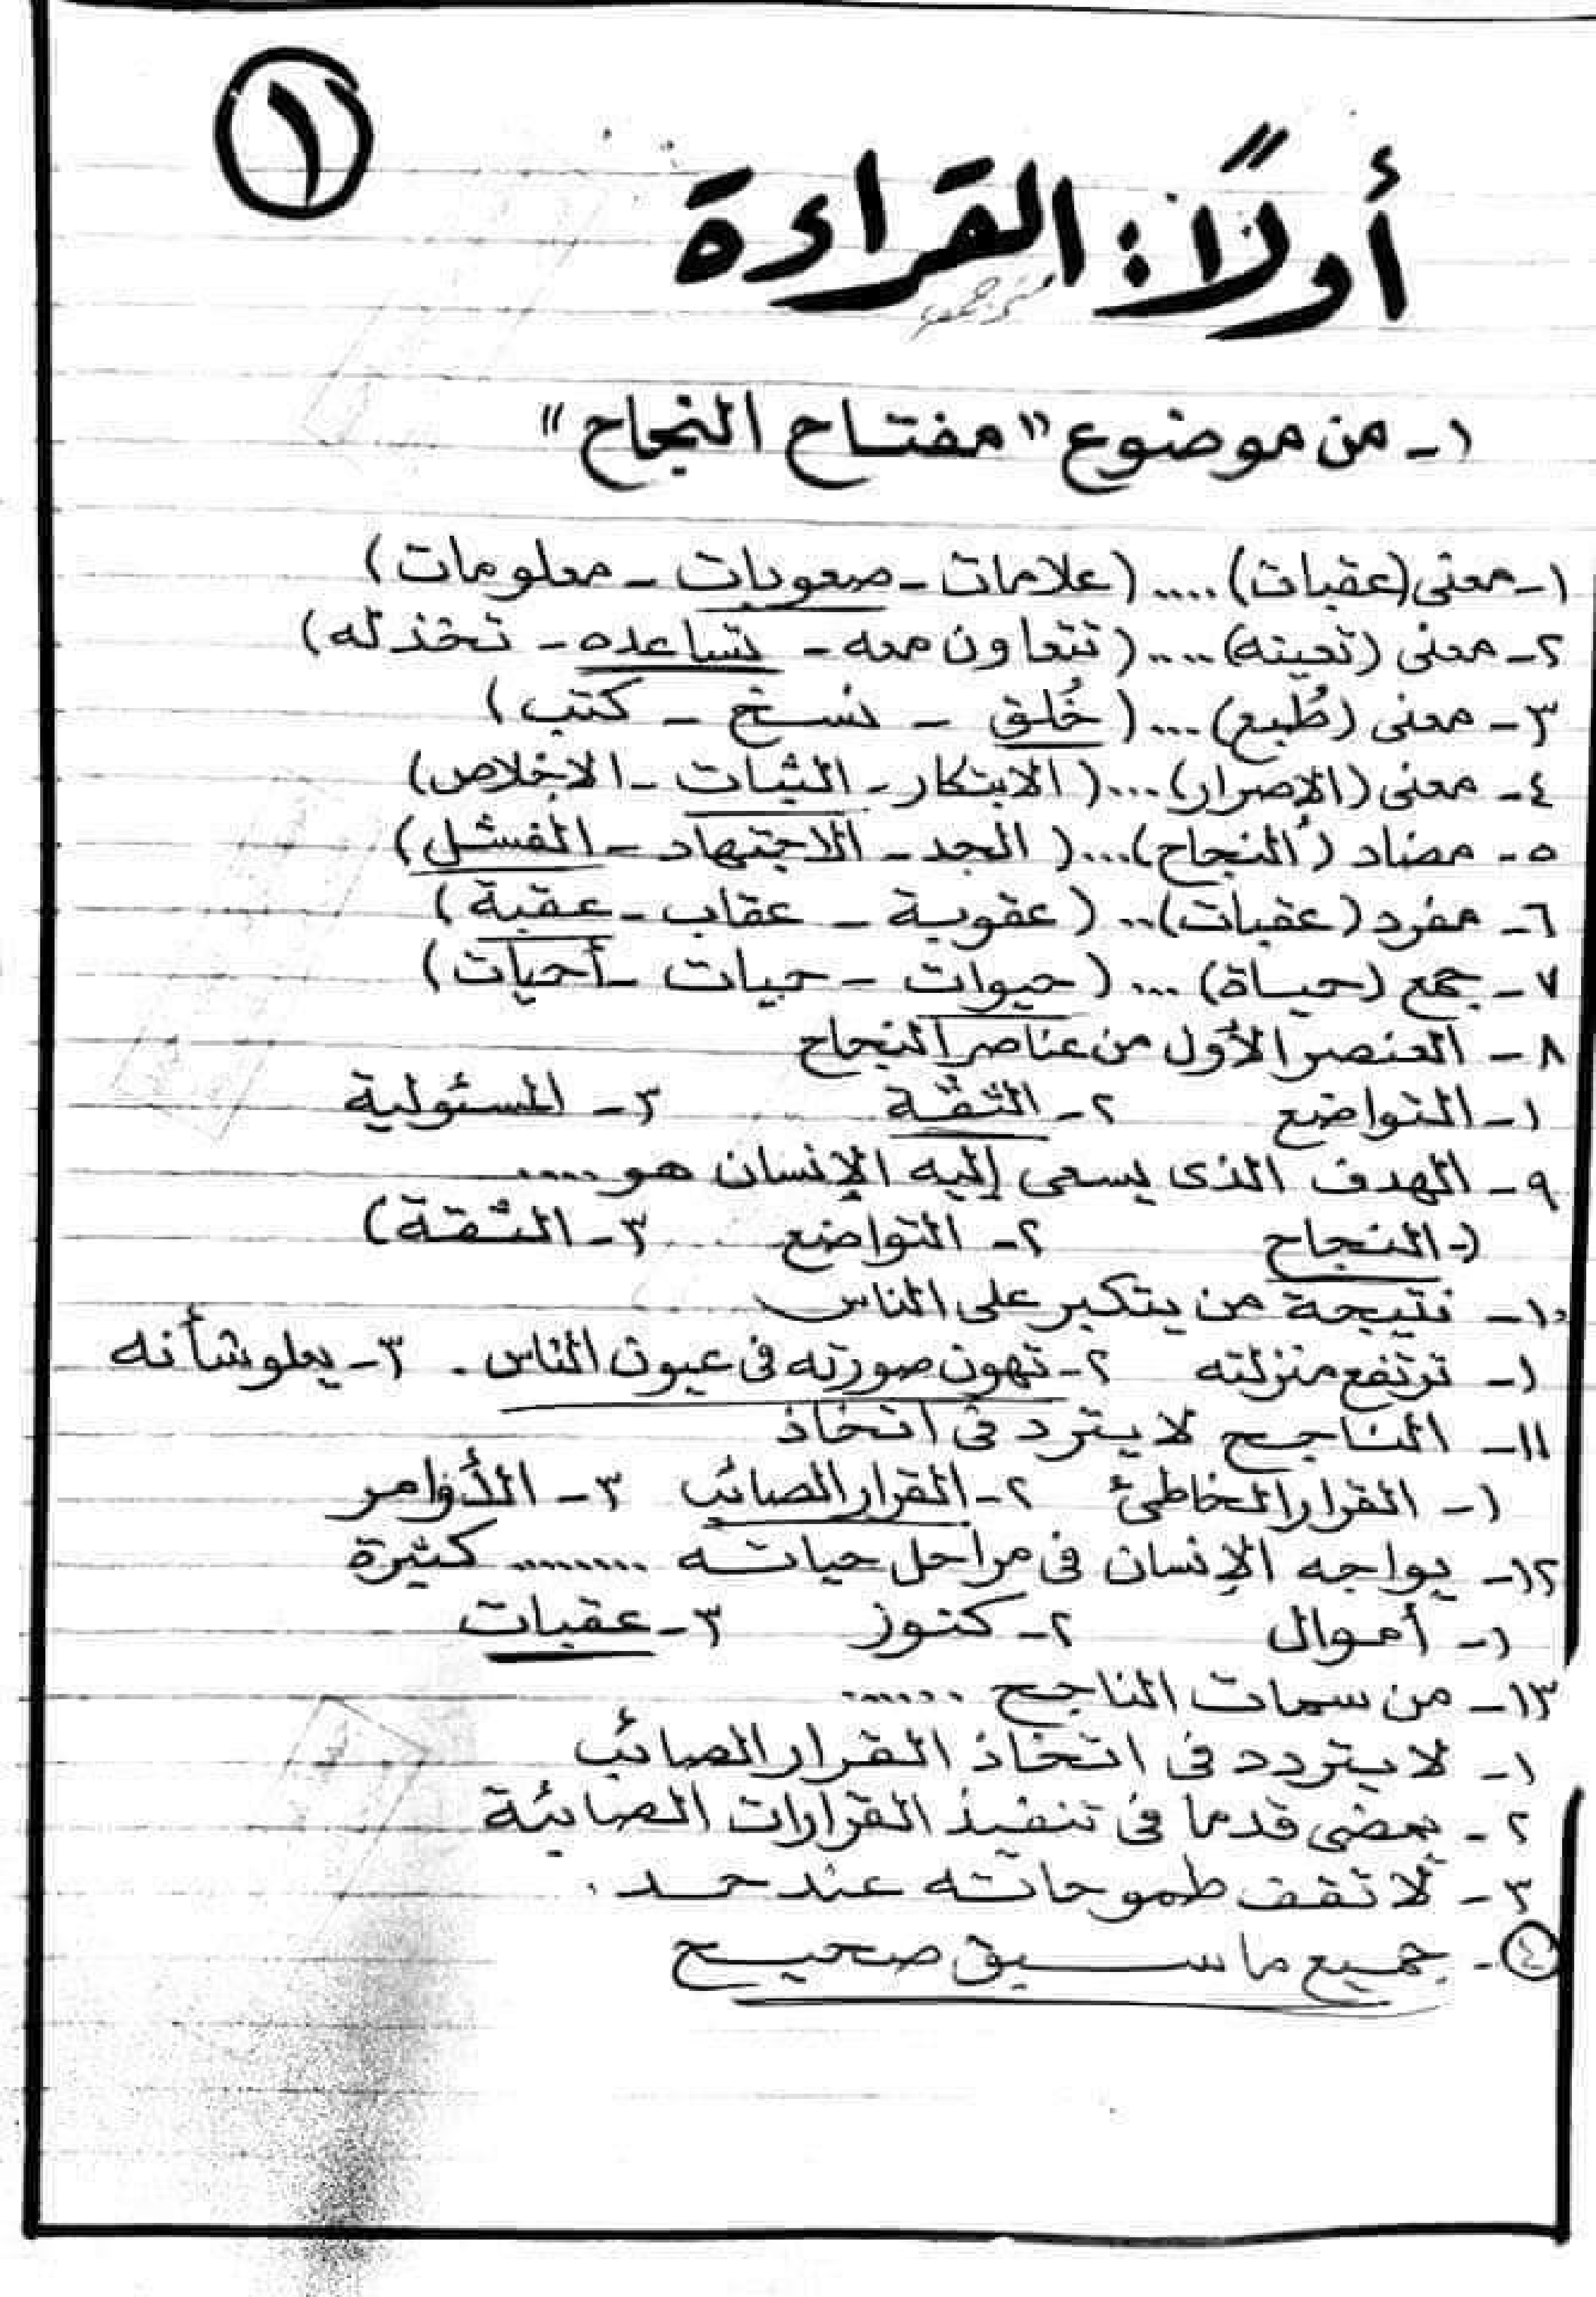 ١
أولاً: القراءة
١- من موضوع "مفتاح النجاح"
١- معنى (عقبات) .... (علامات - صعوبات - معلومات)
٢- معنى (تعينه) .... (تتعاون معه - تساعده - تخذله)
٣- معنى (طُبع) ... (خُلق - نسخ - كتب)
٤- معنى (الإصرار) ... (الابتكار - الثبات - الإخلاص)
٥- مضاد (النجاح) ... (الجد - الاجتهاد - الفشل)
٦- مفرد (عقبات) .. (عقوبة - عقاب - عقبة)
٧- جمع (حياة) ... (حيوات - حيات - أحيات)
٨- العنصر الأول من عناصر النجاح
١- التواضع ٢- الثقة ٣- المسئولية
٩- الهدف الذى يسعى إليه الإنسان هو ....
(- النجاح ٢- التواضع ٣- الثقة)
١٠- نتيجة من يتكبر على الناس
١- ترتفع منزلته ٢- تهون صورته فى عيون الناس . ٣- يعلو شأنه
١١- الناجح لا يترد فى اتخاذ
١- القرار الخاطئ ٢- القرار الصائب ٣- الأوامر
١٢- يواجه الإنسان فى مراحل حياته ........ كثيرة
١- أموال ٢- كنوز ٣- عقبات
١٣- من سمات الناجح ......
١- لا يتردد فى اتخاذ القرار الصائب
٢- يمضى قدما فى تنفيذ القرارات الصائبة
٣- لا تقف طموحاته عند حد .
٤- جميع ما سبق صحيح